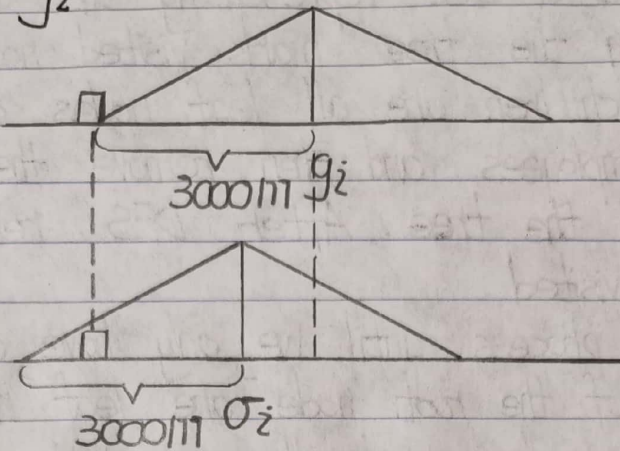 3000m gi
3000m σi